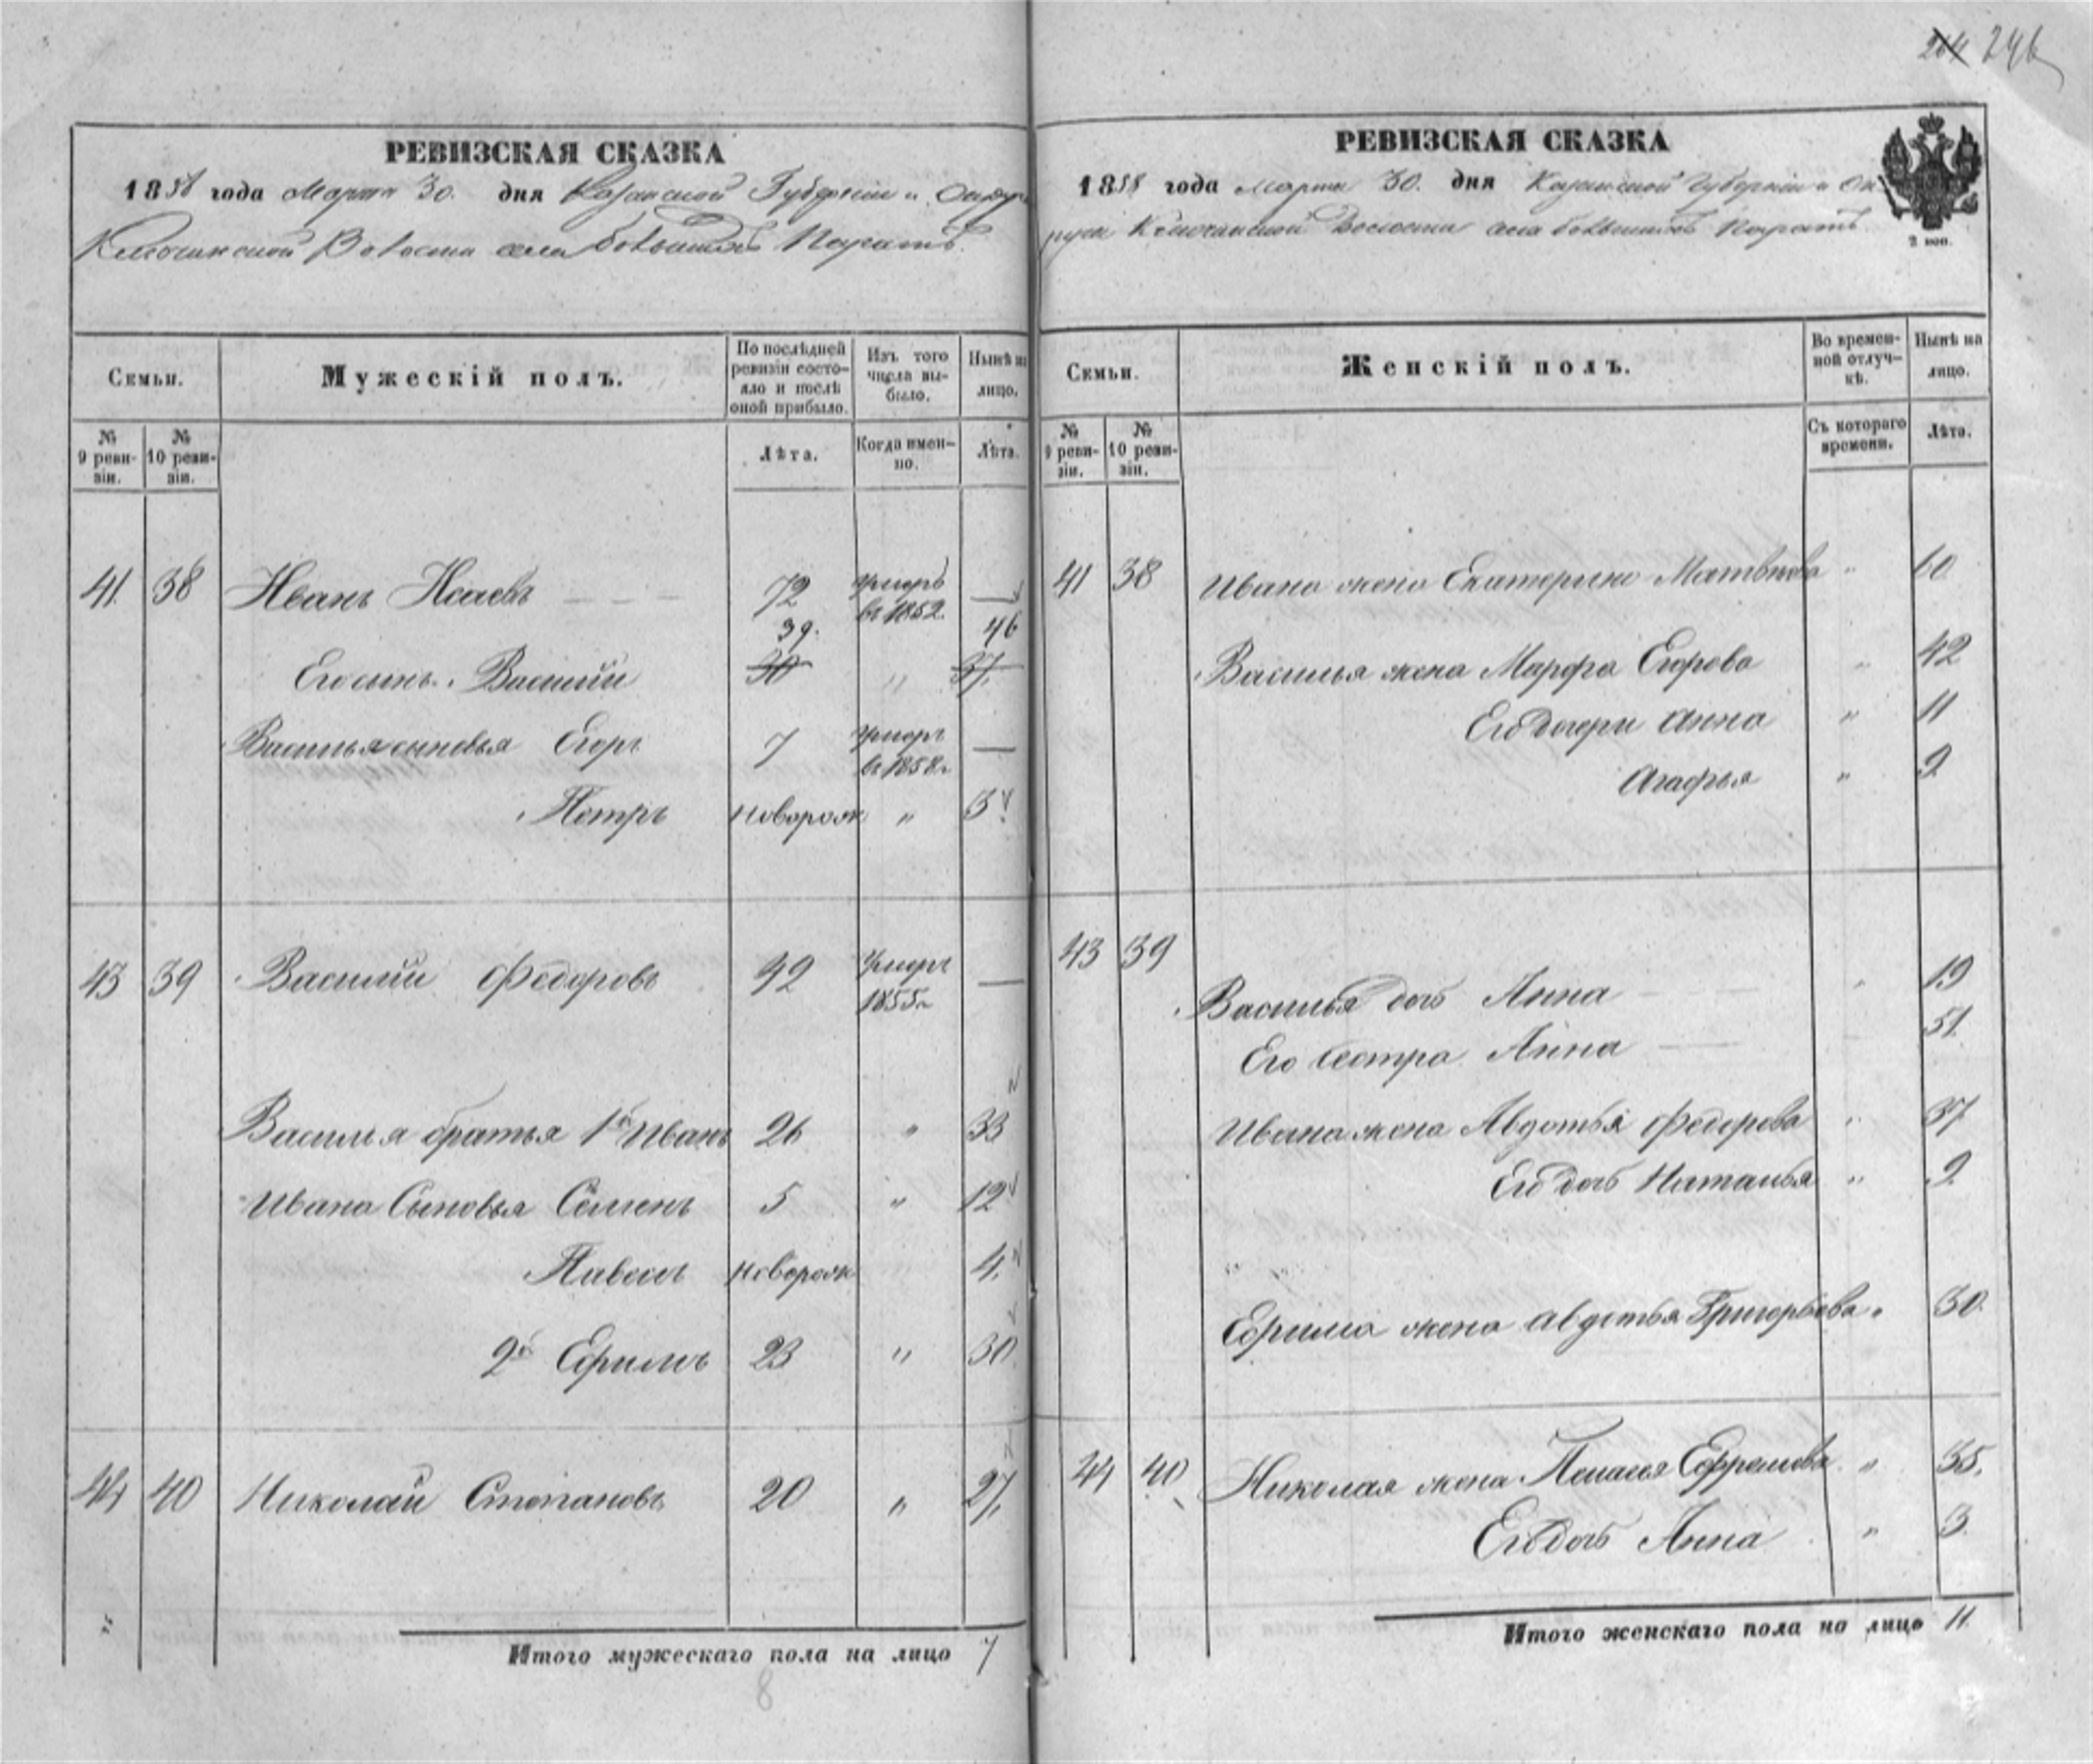 204 246
РЕВИЗСКАЯ СКАЗКА
1858 года Марта 30. дня Казанской Губерніи и Округа
Ключинской Волости села большихъ Паратъ.
Семьи.
Мужескій полъ.
По послѣдней ревизіи состояло и послѣ оной прибыло.
Изъ того числа выбыло.
Нынѣ на лицо.
№ 9 ревизіи.
№ 10 ревизіи.
Лѣта.
Когда именно.
Лѣта.
41. 38 Иванъ Исаевъ 72 умеръ въ 1852. —
39. 46
Его сынъ Василій 30 " 37.
Василья сыновья Егоръ 7 умеръ въ 1858 г. —
Петръ новорож " 3
43 39 Василій Федоровъ 42 умеръ 1855 г. —
Василья братья 1й Иванъ 26 " 33
Ивана Сыновья Семенъ 5 " 12
Павелъ новорож " 4.
2й Ефимъ 23 " 30
44 40 Николай Степановъ 20 " 27.
Итого мужескаго пола на лицо 7
8
РЕВИЗСКАЯ СКАЗКА
1858 года марта 30. дня Казанской Губерніи и Ок
руга Ключинской Волости села большихъ Паратъ
2 коп.
Семьи.
Женскій полъ.
Во временной отлучкѣ.
Нынѣ на лицо.
№ 9 ревизіи.
№ 10 ревизіи.
Съ котораго времени.
Лѣта.
41 38 Ивана жена Екатерина Матвѣева " 60
Василья жена Марфа Егорова " 42
Его дочери Анна " 11
Агафья " 9
43 39
Василья дочь Анна " 19
Его Сестра Анна 51.
Ивана жена Авдотья Федорова " 37
Его дочь Наталья " 9
Ефима жена Авдотья Григорьева " 30.
44 40 Николая жена Пелагея Ефремова " 35.
Его дочь Анна " 3.
Итого женскаго пола на лицо 11.